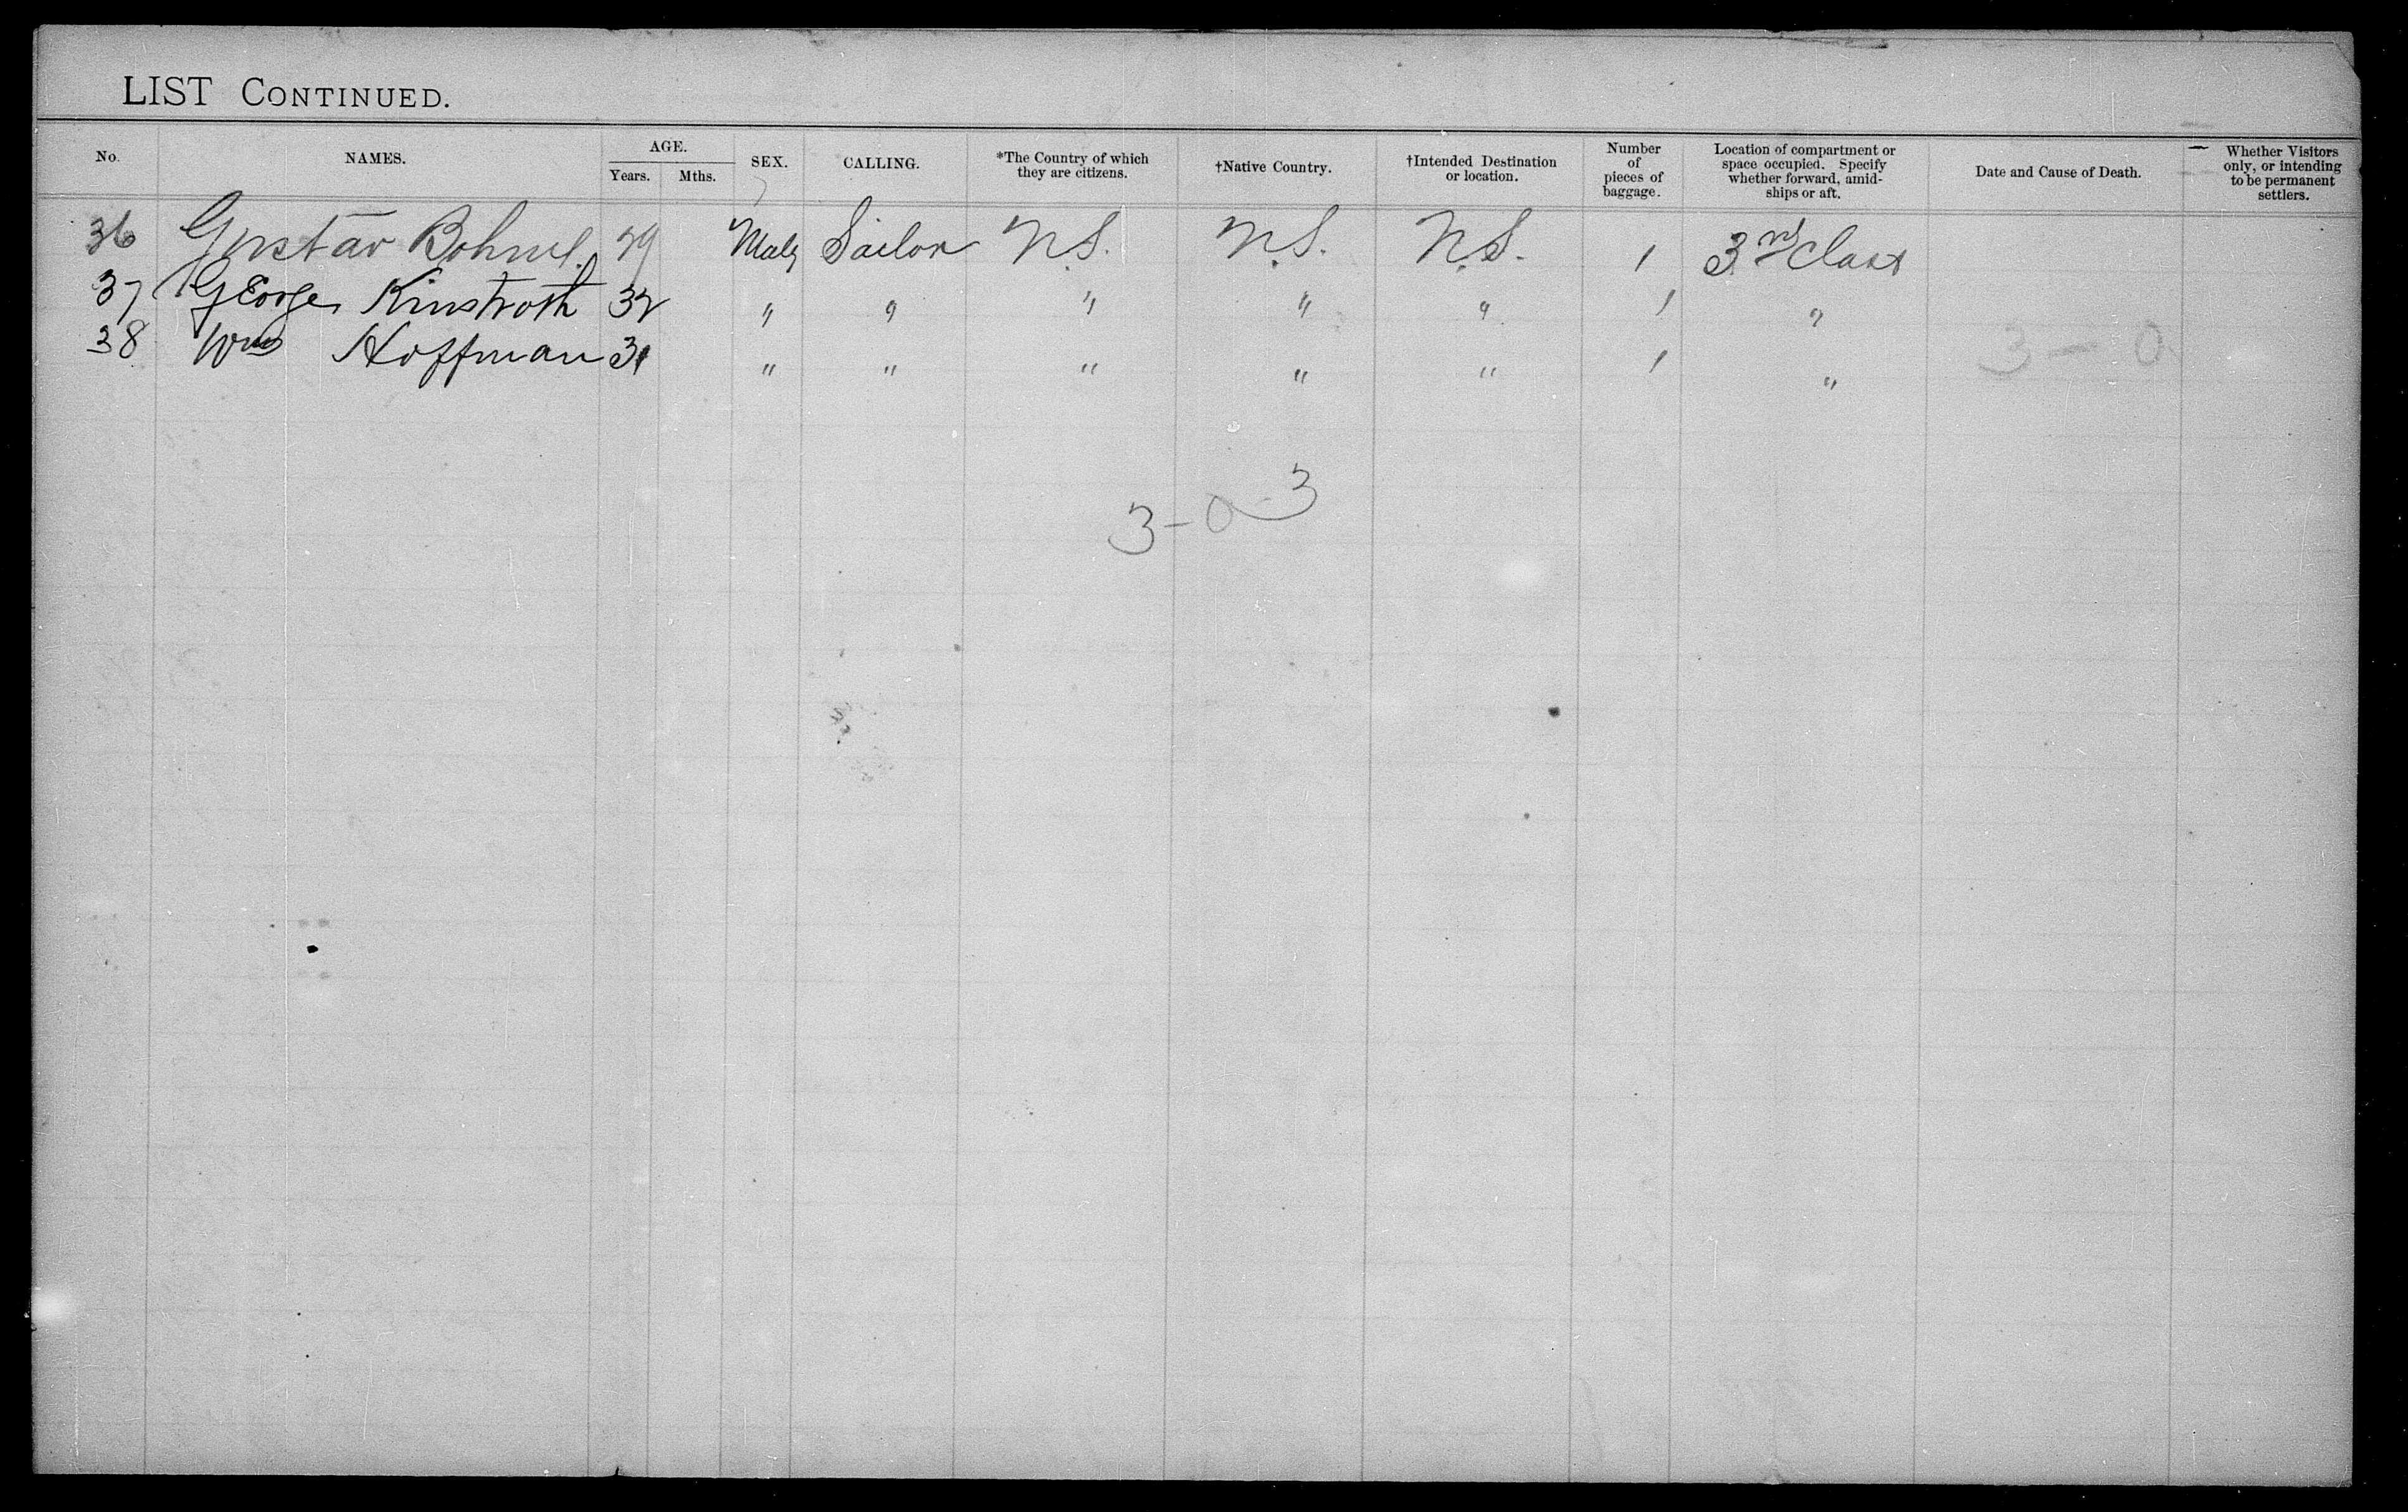 LIST CONTINUED.
No. NAMES. AGE. Years. Mths. SEX. CALLING. *The Country of which they are citizens. †Native Country. †Intended Destination or location. Number of pieces of baggage. Location of compartment or space occupied. Specify whether forward, amidships or aft. Date and Cause of Death. Whether Visitors only, or intending to be permanent settlers.
36 Gustav 29 Male Sailor N.S. N.S. N.S. 1 3rd Class
37 George 32 " " " " " 1 "
38 Wm Hoffman 31 " " " " " 1 "
3 - 0
3-0-3